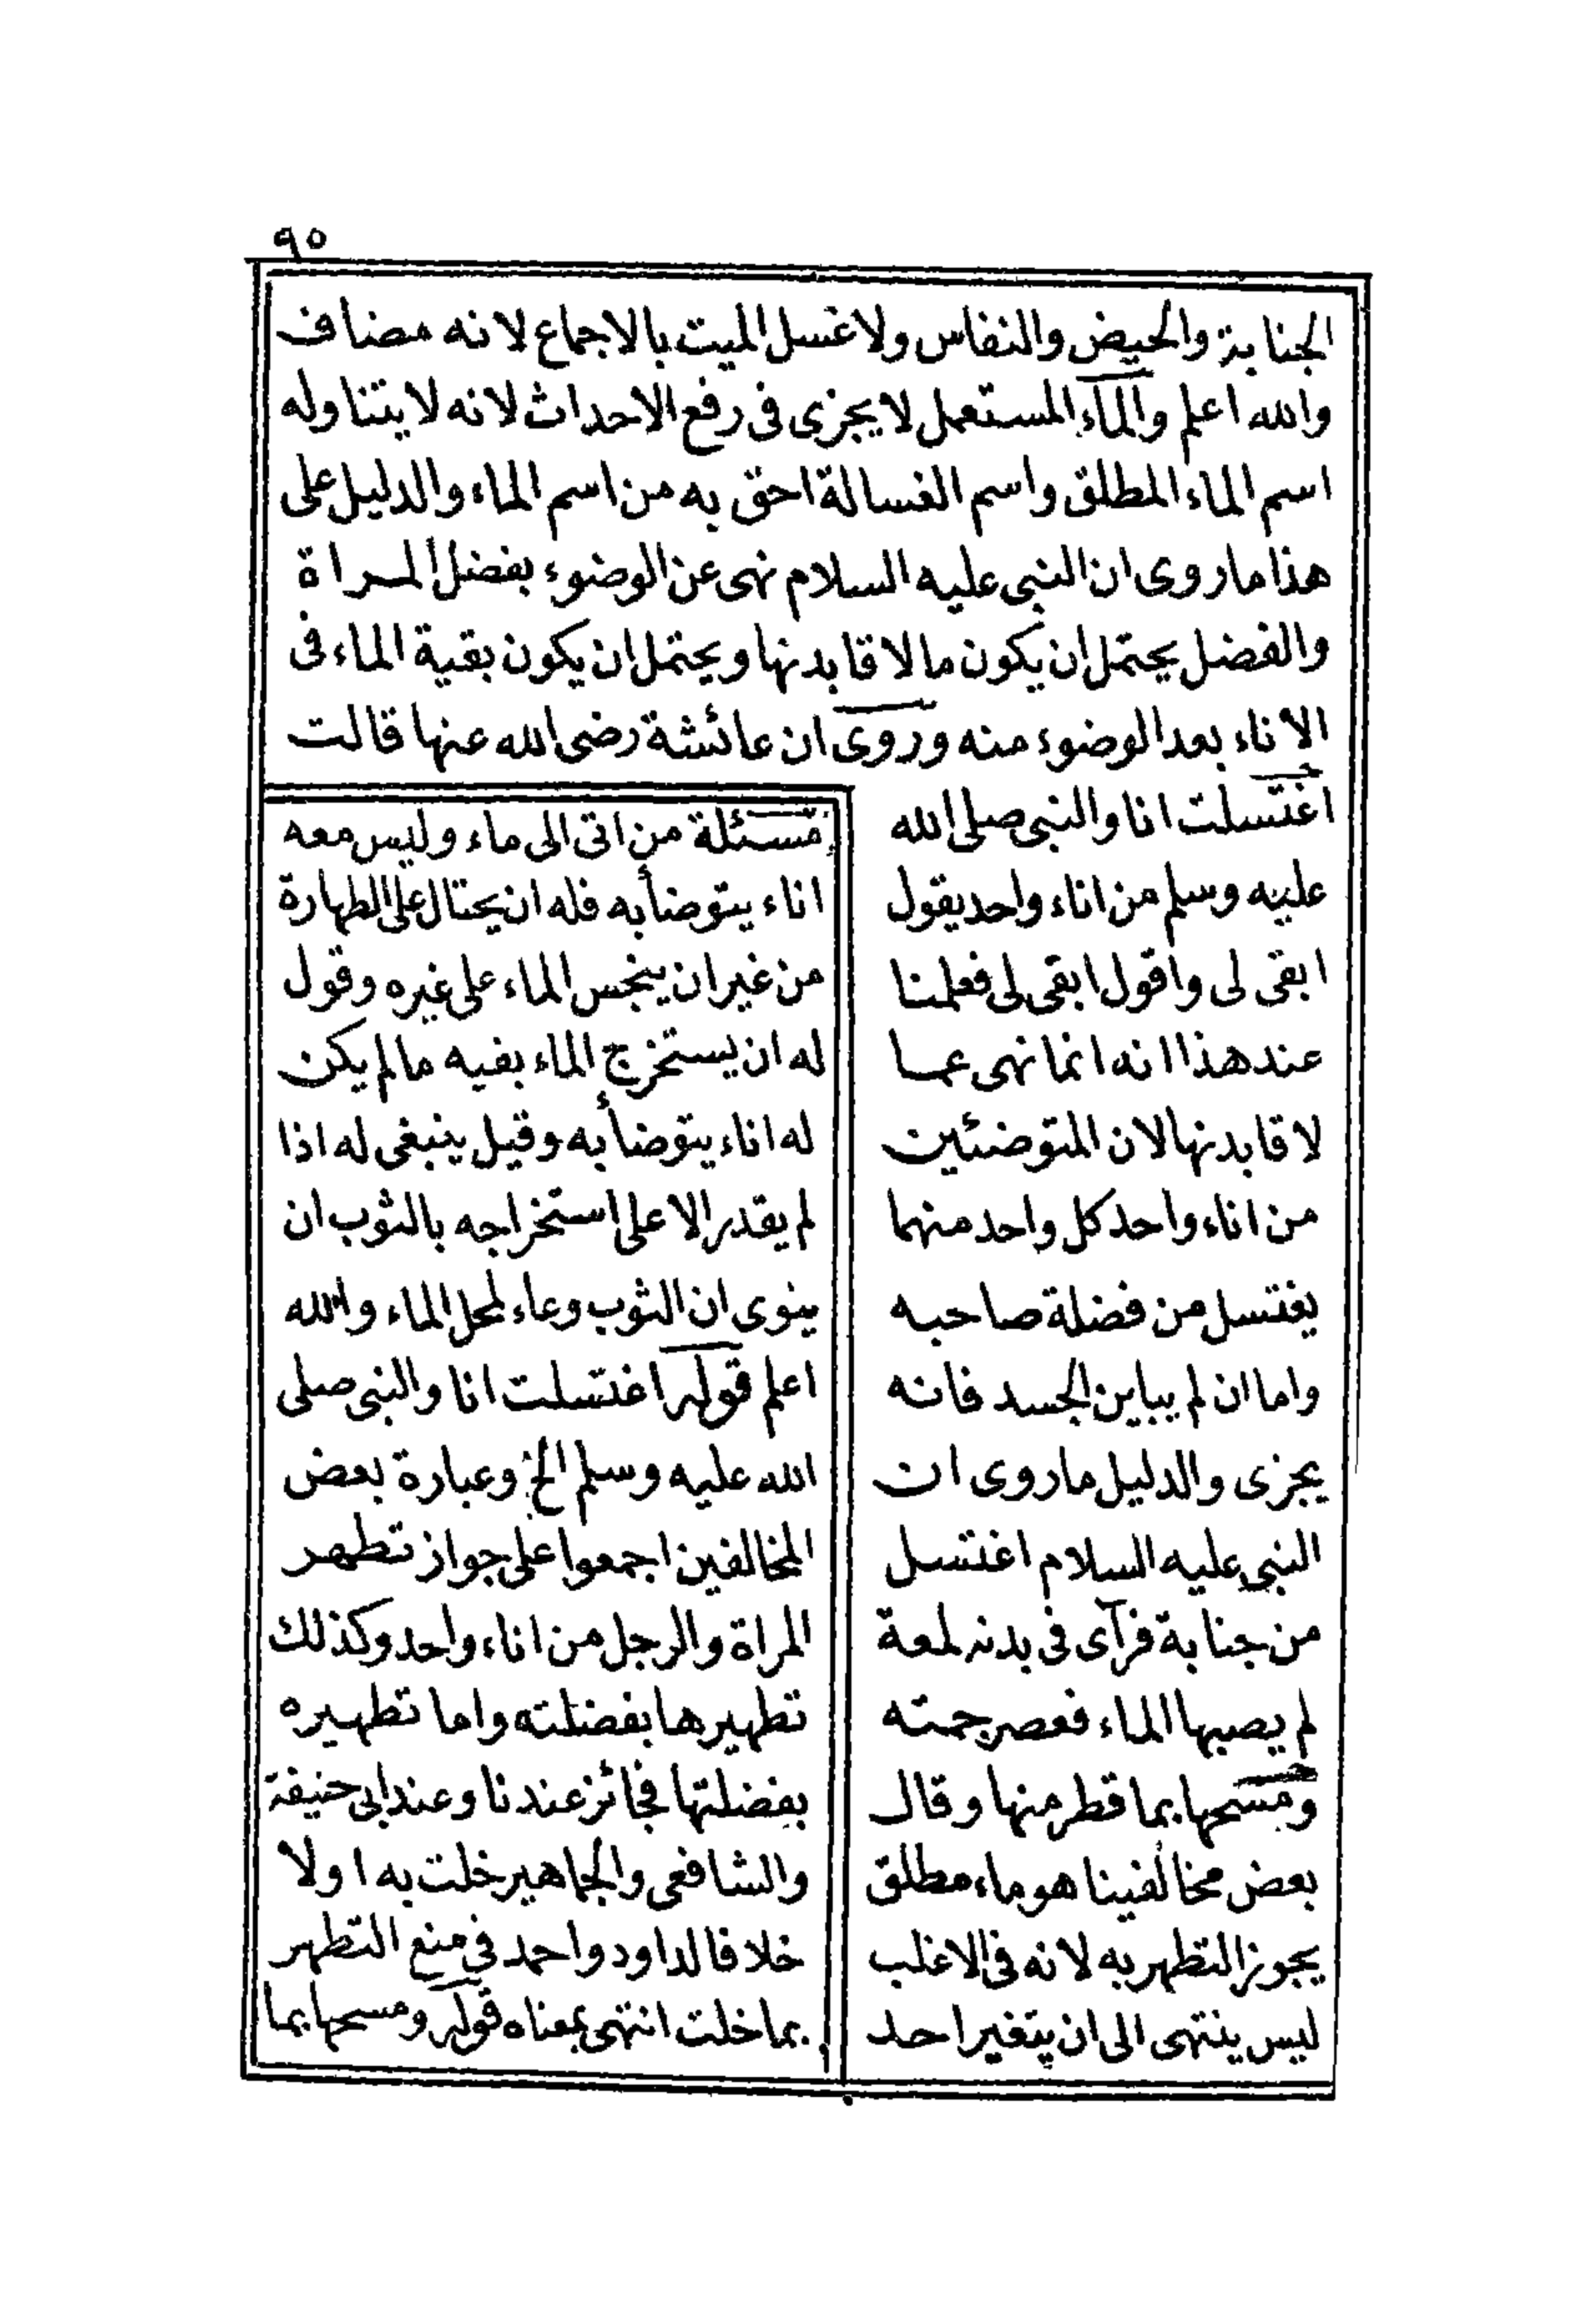 ٩٥
الجنابة والحيض والنفاس ولا غسل الميت بالاجماع لانه مضاف
والله اعلم والماء المستعمل لا يجزى فى رفع الاحداث لانه لا يتناوله
اسم الماء المطلق واسم الغسالة احق به من اسم الماء والدليل على
هذا ما روى ان النبى عليه السلام نهى عن الوضوء بفضل المراة
والفضل يحتمل ان يكون ما لاقا بدنها ويحتمل ان يكون بقية الماء فى
الاناء بعد الوضوء منه وروى ان عائشة رضى الله عنها قالت
اغتسلت انا والنبى صلى الله
عليه وسلم من اناء واحد يقول
ابقى لى واقول ابقى لى فعلمنا
عند هذا انه انما نهى عما
لاقا بدنها لان المتوضئين
من اناء واحد كل واحد منهما
يغتسل من فضلة صاحبه
واما ان لم يباين الجسد فانه
يجزى والدليل ما روى ان
النبى عليه السلام اغتسل
من جنابة فرآى فى بدنه لمعة
لم يصبها الماء فعصر جمته
ومسحها بما قطر منها وقال
بعض مخالفينا هو ماء مطلق
يجوز التطهر به لانه فى الاغلب
ليس ينتهى الى ان يتغير احد
مسئلة من اتى الى ماء وليس معه
اناء يتوضأ به فله ان يحتال على الطهارة
من غير ان ينجس الماء على غيره وقول
له ان يستخرج الماء بفيه ما لم يكن
له اناء يتوضأ به وقيل ينبغى له اذا
لم يقدر الا على استخراجه بالثوب ان
ينوى ان الثوب وعاء لمحل الماء والله
اعلم قوله اغتسلت انا والنبى صلى
الله عليه وسلم الخ وعبارة بعض
المخالفين اجمعوا على جواز تطهر
المراة والرجل من اناء واحد وكذلك
تطهيرها بفضلته واما تطهيره
بفضلتها فجائز عندنا وعند ابى حنيفة
والشافعى والجماهير خلت به اولا
خلافا لداود واحمد فى منع التطهر
بما خلت انتهى بمعناه قوله ومسحها بما